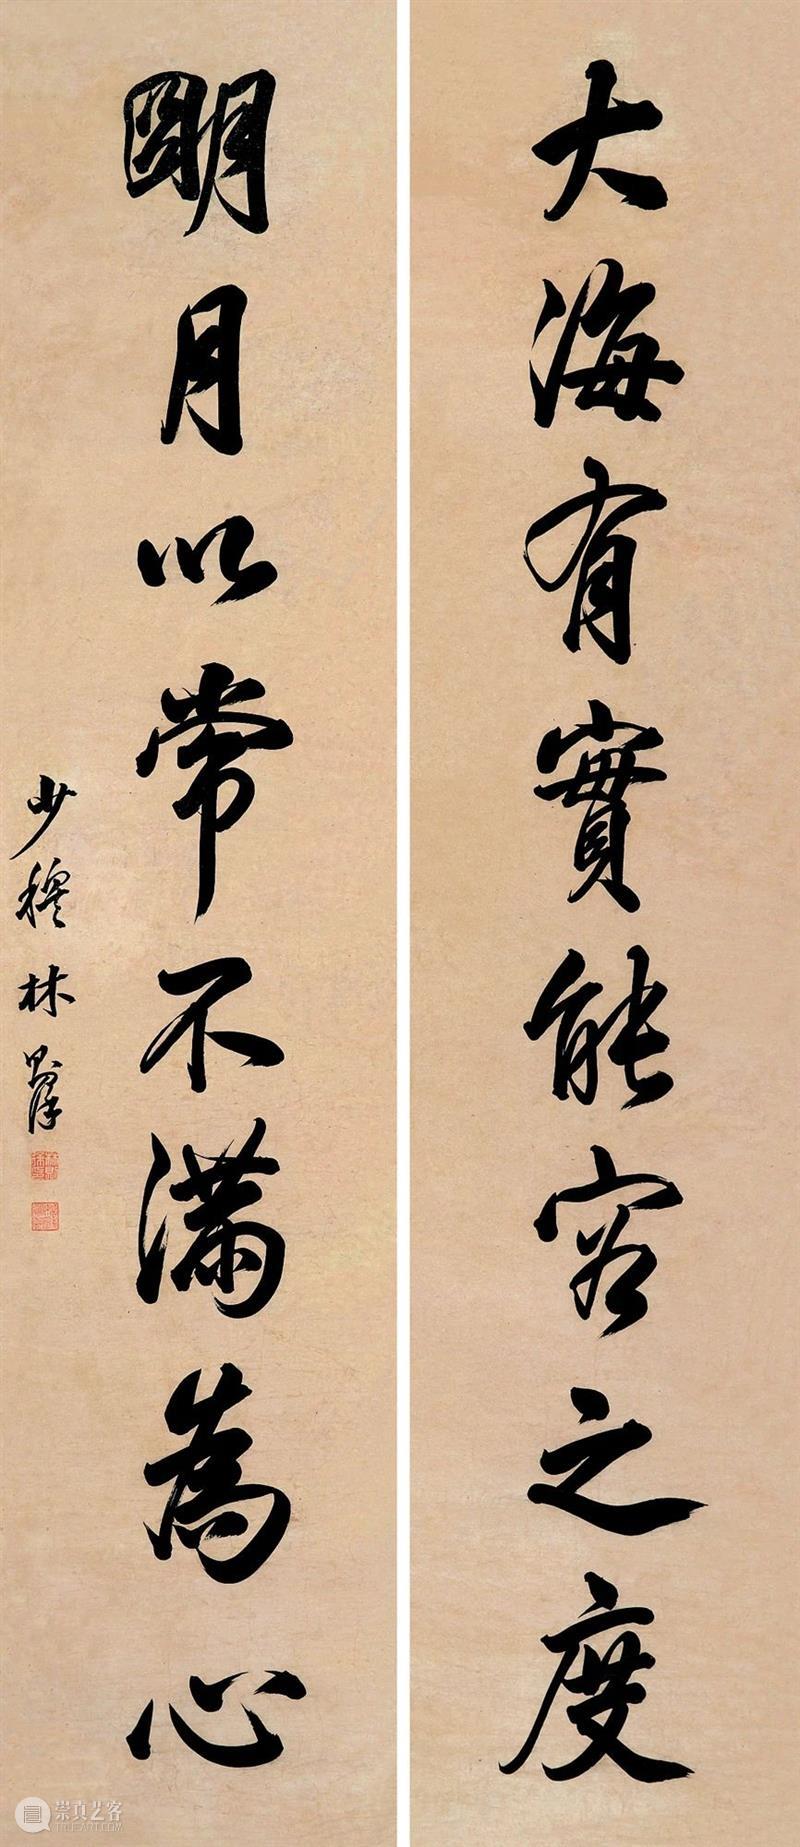 大海有實能容之度
明月以常不滿為心
少穆林則徐
崇真艺客
TRUEART.COM